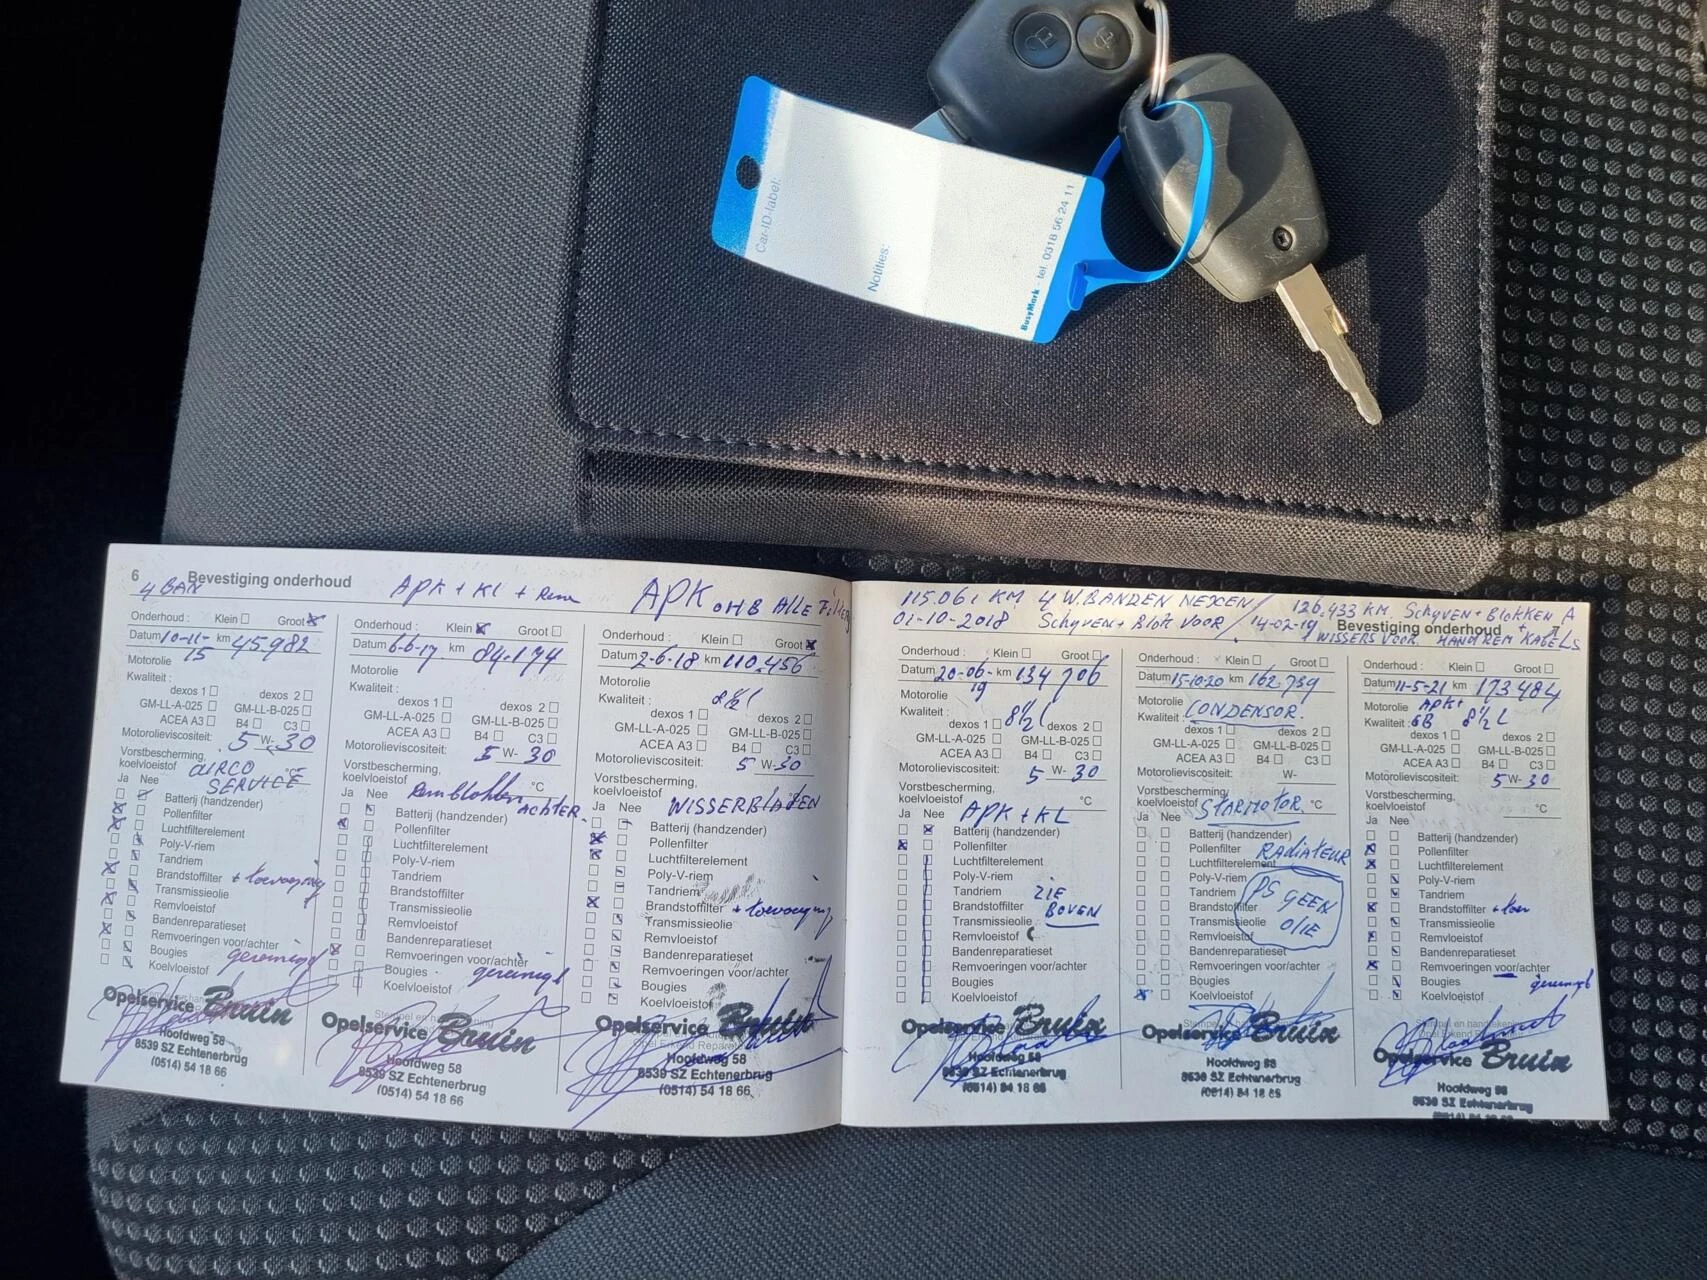 Car-ID-label:
Notities:
BusyMark - tel. 0318 56 24 11
6 Bevestiging onderhoud
4 BAN
APK + KL +
APK OHB ALLE
Onderhoud : Klein Groot
Datum 10-11-15 km 45.982
Motorolie
Kwaliteit :
dexos 1 dexos 2
GM-LL-A-025 GM-LL-B-025
ACEA A3 B4 C3
Motorolieviscositeit: 5 W- 30
Vorstbescherming,
koelvloeistof AIRCO °C
SERVICE
Ja Nee
Batterij (handzender)
Pollenfilter
Luchtfilterelement
Poly-V-riem
Tandriem
Brandstoffilter + toevoeging
Transmissieolie
Remvloeistof
Bandenreparatieset
Remvoeringen voor/achter
Bougies gereinigd
Koelvloeistof
Opelservice Bruin
Hoofdweg 58
8539 SZ Echtenerbrug
(0514) 54 18 66
Onderhoud : Klein Groot
Datum 6-6-17 km 84.174
Motorolie
Kwaliteit :
dexos 1 dexos 2
GM-LL-A-025 GM-LL-B-025
ACEA A3 B4 C3
Motorolieviscositeit: 5 W- 30
Vorstbescherming,
koelvloeistof °C
Ja Nee Remblokken
ACHTER
Batterij (handzender)
Pollenfilter
Luchtfilterelement
Poly-V-riem
Tandriem
Brandstoffilter
Transmissieolie
Remvloeistof
Bandenreparatieset
Remvoeringen voor/achter
Bougies gereinigd
Koelvloeistof
Opelservice Bruin
Hoofdweg 58
8539 SZ Echtenerbrug
(0514) 54 18 66
Onderhoud : Klein Groot
Datum 2-6-18 km 110.456
Motorolie
Kwaliteit : 8½ l
dexos 1 dexos 2
GM-LL-A-025 GM-LL-B-025
ACEA A3 B4 C3
Motorolieviscositeit: 5 W- 30
Vorstbescherming,
koelvloeistof
Ja Nee WISSERBLADEN
Batterij (handzender)
Pollenfilter
Luchtfilterelement
Poly-V-riem
Tandriem
Brandstoffilter + toevoeging
Transmissieolie
Remvloeistof
Bandenreparatieset
Remvoeringen voor/achter
Bougies
Koelvloeistof
Opelservice Bruin
Hoofdweg 58
8539 SZ Echtenerbrug
(0514) 54 18 66
115.061 KM 4 W.BANDEN NEXEN /
01-10-2018 Schyven + Blok VOOR /
126.433 KM. Schyven + Blokken A
14-02-19 Bevestiging onderhoud +
WISSERS VOOR. HANDREM KABELS
Onderhoud : Klein Groot
Datum 20-06-19 km 134 706
Motorolie
Kwaliteit : 8½ l
dexos 1 dexos 2
GM-LL-A-025 GM-LL-B-025
ACEA A3 B4 C3
Motorolieviscositeit: 5 W- 30
Vorstbescherming,
koelvloeistof °C
Ja Nee APK + KL
Batterij (handzender)
Pollenfilter
Luchtfilterelement
Poly-V-riem
Tandriem ZIE
Brandstoffilter BOVEN
Transmissieolie
Remvloeistof
Bandenreparatieset
Remvoeringen voor/achter
Bougies
Koelvloeistof
Opelservice Bruin
Hoofdweg 58
8539 SZ Echtenerbrug
(0514) 54 18 66
Onderhoud : Klein Groot
Datum 15-10-20 km 162.739
Motorolie
Kwaliteit : CONDENSOR.
dexos 1 dexos 2
GM-LL-A-025 GM-LL-B-025
ACEA A3 B4 C3
Motorolieviscositeit: W-
Vorstbescherming,
koelvloeistof STARMOTOR °C
Ja Nee
Batterij (handzender)
Pollenfilter RADIATEUR
Luchtfilterelement
Poly-V-riem
Tandriem PS GEEN
Brandstoffilter OLIE
Transmissieolie
Remvloeistof
Bandenreparatieset
Remvoeringen voor/achter
Bougies
Koelvloeistof
Opelservice
Hoofdweg 58
8539 SZ Echtenerbrug
(0514) 54 18 66
Onderhoud : Klein Groot
Datum 11-5-21 km 173484
Motorolie APK+
Kwaliteit : GB 8½ L
dexos 1 dexos 2
GM-LL-A-025 GM-LL-B-025
ACEA A3 B4 C3
Motorolieviscositeit: 5 W- 30
Vorstbescherming,
koelvloeistof °C
Ja Nee
Batterij (handzender)
Pollenfilter
Luchtfilterelement
Poly-V-riem
Tandriem
Brandstoffilter
Transmissieolie
Remvloeistof
Bandenreparatieset
Remvoeringen voor/achter
Bougies gereinigd
Koelvloeistof
Stempel en handtekening
Opelservice Bruin
Hoofdweg 58
8539 SZ Echtenerbrug
(0514) 54 18 66